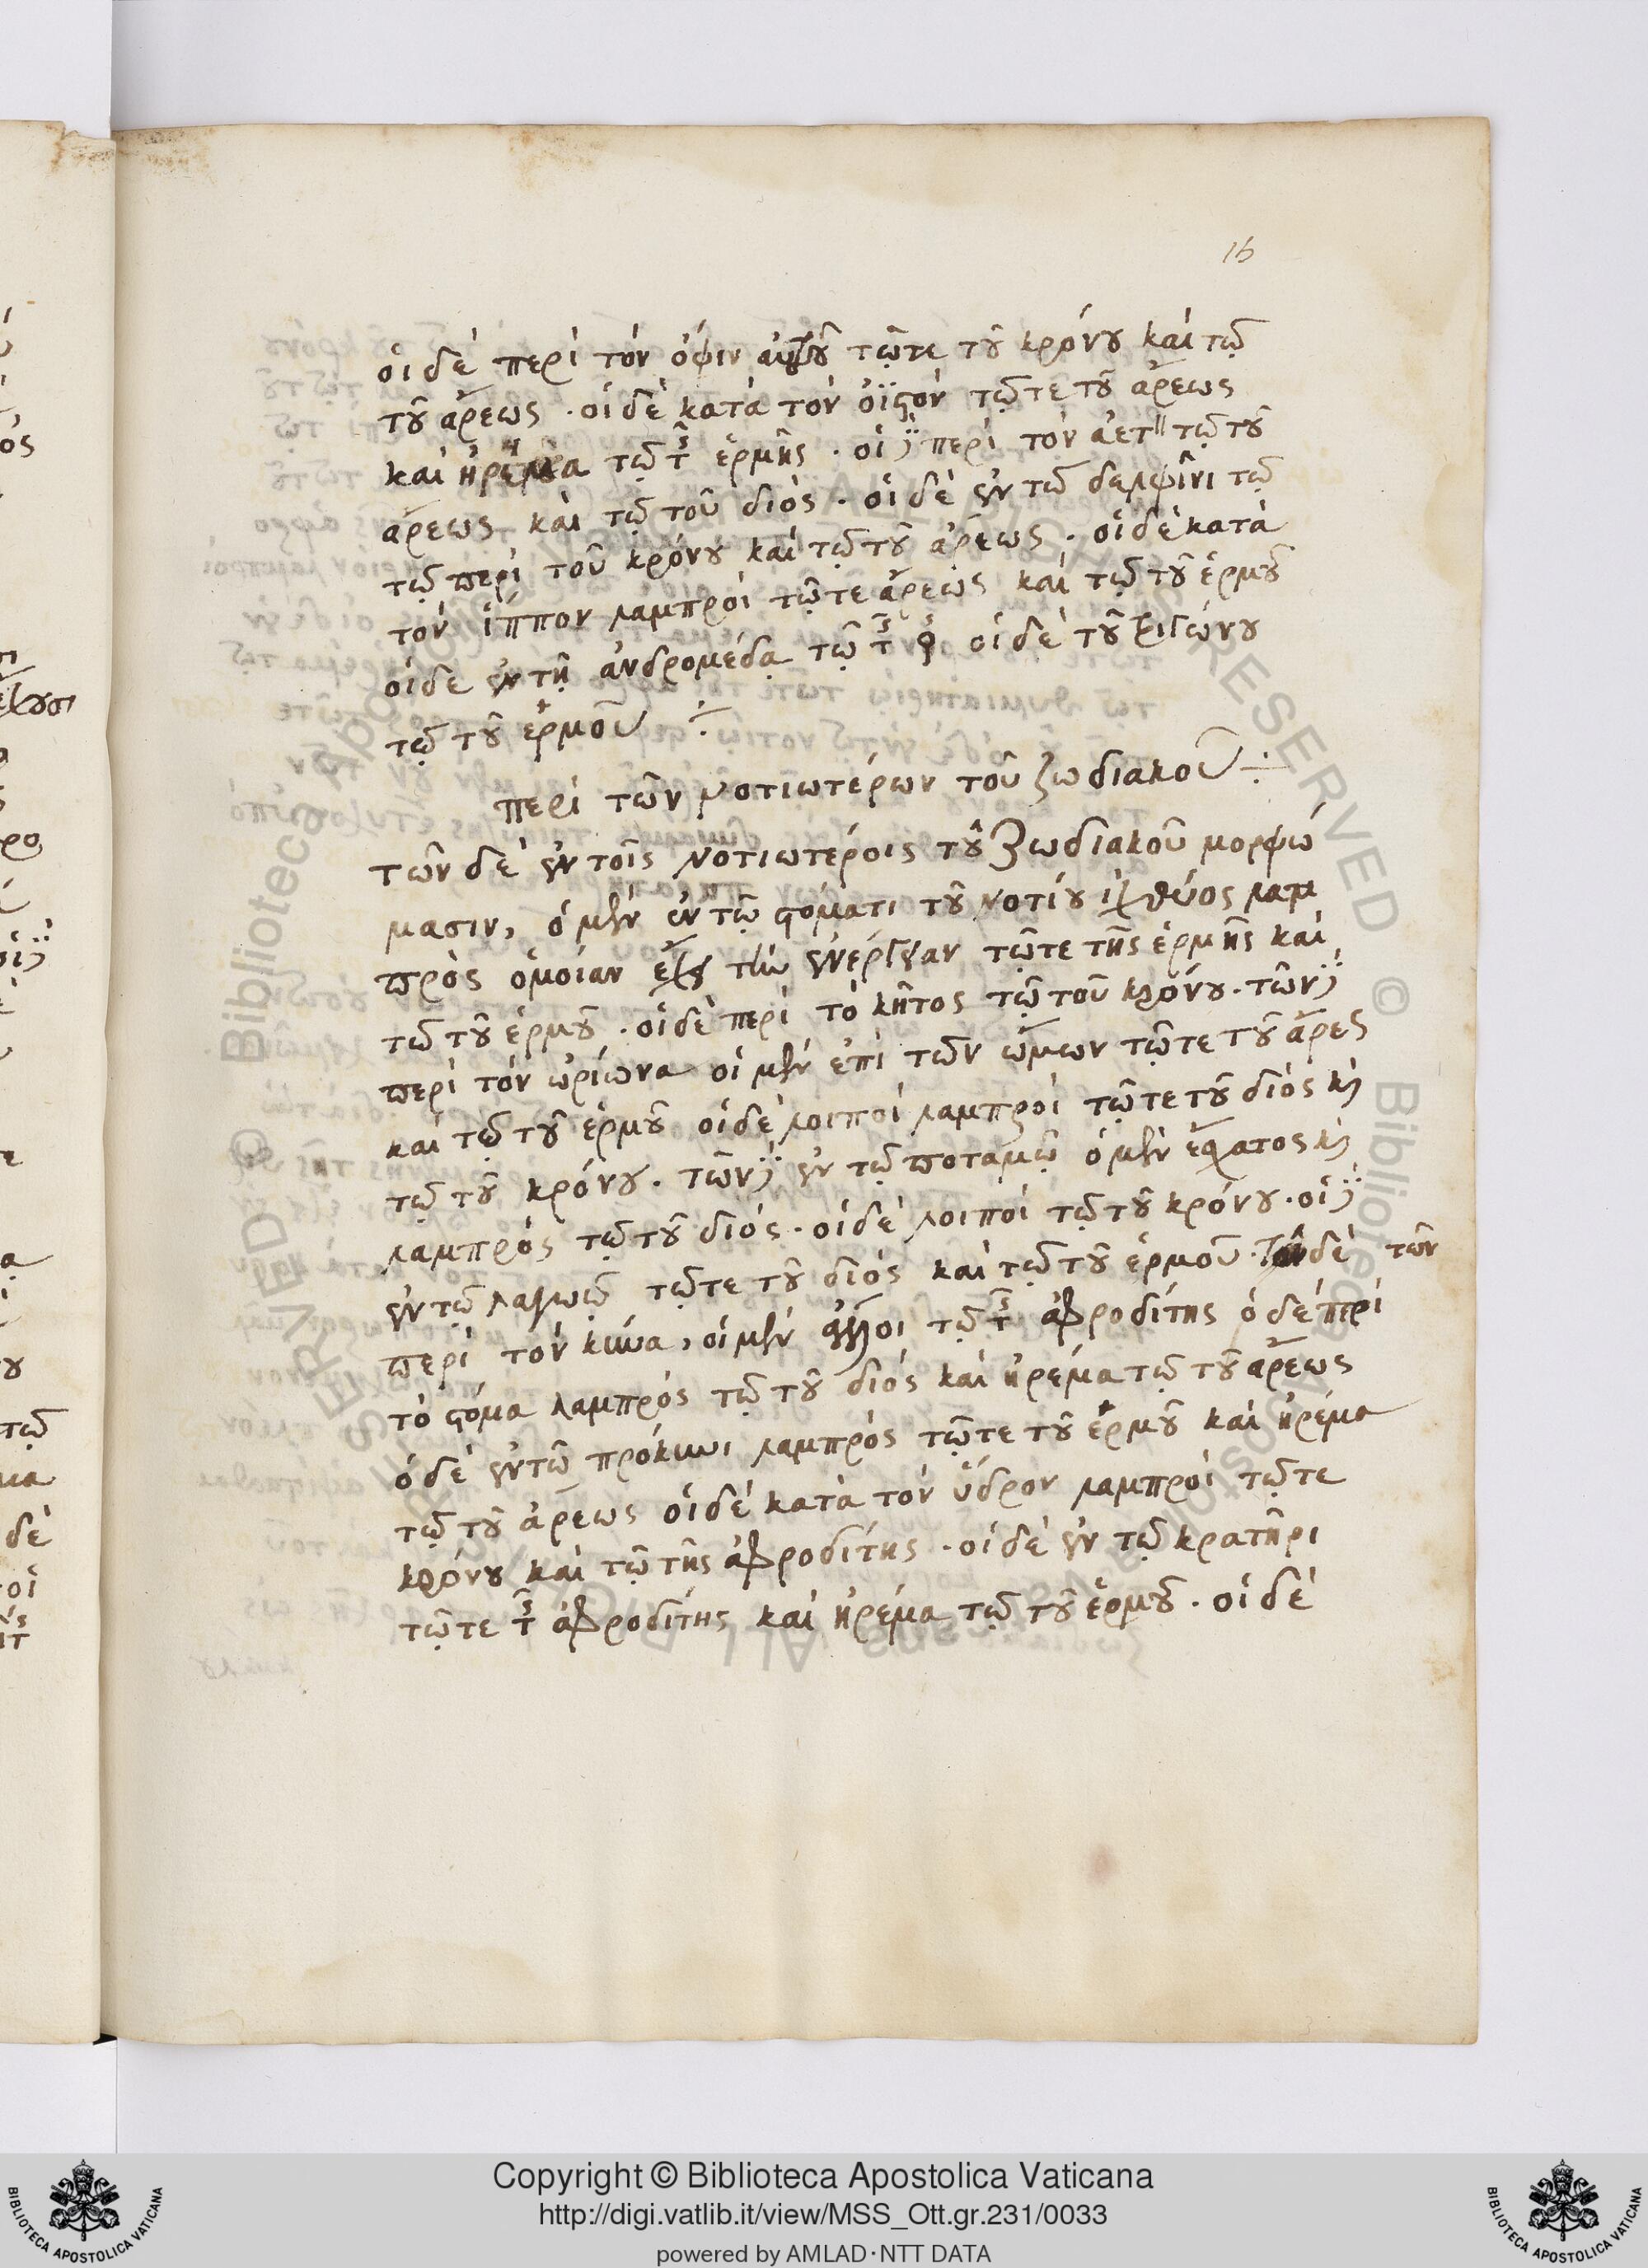 16
οἱ δὲ περὶ τὸν ὄφιν αὐτοῦ τῷ τε τοῦ κρόνου καὶ τῷ
τοῦ ἄρεως · οἱ δὲ κατὰ τὸν ὀϊστὸν τῷ τε τοῦ ἄρεως
καὶ ἠρέμα τῷ τῆς ἑρμῆς · οἱ δὲ περὶ τὸν ἀετ τῷ τοῦ
ἄρεως καὶ τῷ τοῦ διός · οἱ δὲ ἐν τῷ δελφῖνι τῷ
τῷ περὶ τοῦ κρόνου καὶ τῷ τοῦ ἄρεως · οἱ δὲ κατὰ
τὸν ἵππον λαμπροὶ τῷ τε ἄρεως καὶ τῷ τοῦ ἑρμοῦ
οἱ δὲ ἐν τῇ ἀνδρομέδᾳ τῷ τῆς ♀ οἱ δὲ τοῦ
τῷ τοῦ ἑρμοῦ ÷
περὶ τῶν νοτιωτέρων τοῦ ζωδιακοῦ ÷
τῶν δὲ ἐν τοῖς νοτιωτέροις τοῦ ζωδιακοῦ μορφώ
μασιν, ὁ μὲν ἐν τῷ στόματι τοῦ νοτίου ἰχθύος λαμ
πρὸς ὁμοίαν ἔχει τὴν ἐνέργειαν τῷ τε τῆς ἑρμῆς καὶ
τῷ τοῦ ἑρμοῦ · οἱ δὲ περὶ τὸ κῆτος τῷ τοῦ κρόνου · τῶν δὲ
περὶ τὸν ὠρίωνα οἱ μὲν ἐπὶ τῶν ὤμων τῷ τε τοῦ ἄρες
καὶ τῷ τοῦ ἑρμοῦ οἱ δὲ λοιποὶ λαμπροὶ τῷ τε τοῦ διὸς κὶ
τῷ τοῦ κρόνου · τῶν δὲ ἐν τῷ ποταμῷ ὁ μὲν ἔσχατος κὶ
λαμπρὸς τῷ τοῦ διός · οἱ δὲ λοιποὶ τῷ τοῦ κρόνου · οἱ δὲ
ἐν τῷ λαγωῷ τῷ τε τοῦ διὸς καὶ τῷ τοῦ ἑρμοῦ · τῶν δὲ τῶν
περὶ τὸν κύνα, οἱ μὲν ἄλλοι τῷ τῆς ἀφροδίτης ὁ δὲ περὶ
τὸ στόμα λαμπρὸς τῷ τοῦ διὸς καὶ ἠρέμα τῷ τοῦ ἄρεως
ὁ δὲ ἐν τῷ πρόκυνι λαμπρὸς τῷ τε τοῦ ἑρμοῦ καὶ ἠρέμα
τῷ τοῦ ἄρεως οἱ δὲ κατὰ τὸν ὕδρον λαμπροὶ τῷ τε
κρόνου καὶ τῷ τῆς ἀφροδίτης · οἱ δὲ ἐν τῷ κρατῆρι
τῷ τε τῆς ἀφροδίτης καὶ ἠρέμα τῷ τοῦ ἑρμοῦ · οἱ δὲ
Copyright © Biblioteca Apostolica Vaticana
http://digi.vatlib.it/view/MSS_Ott.gr.231/0033
powered by AMLAD·NTT DATA